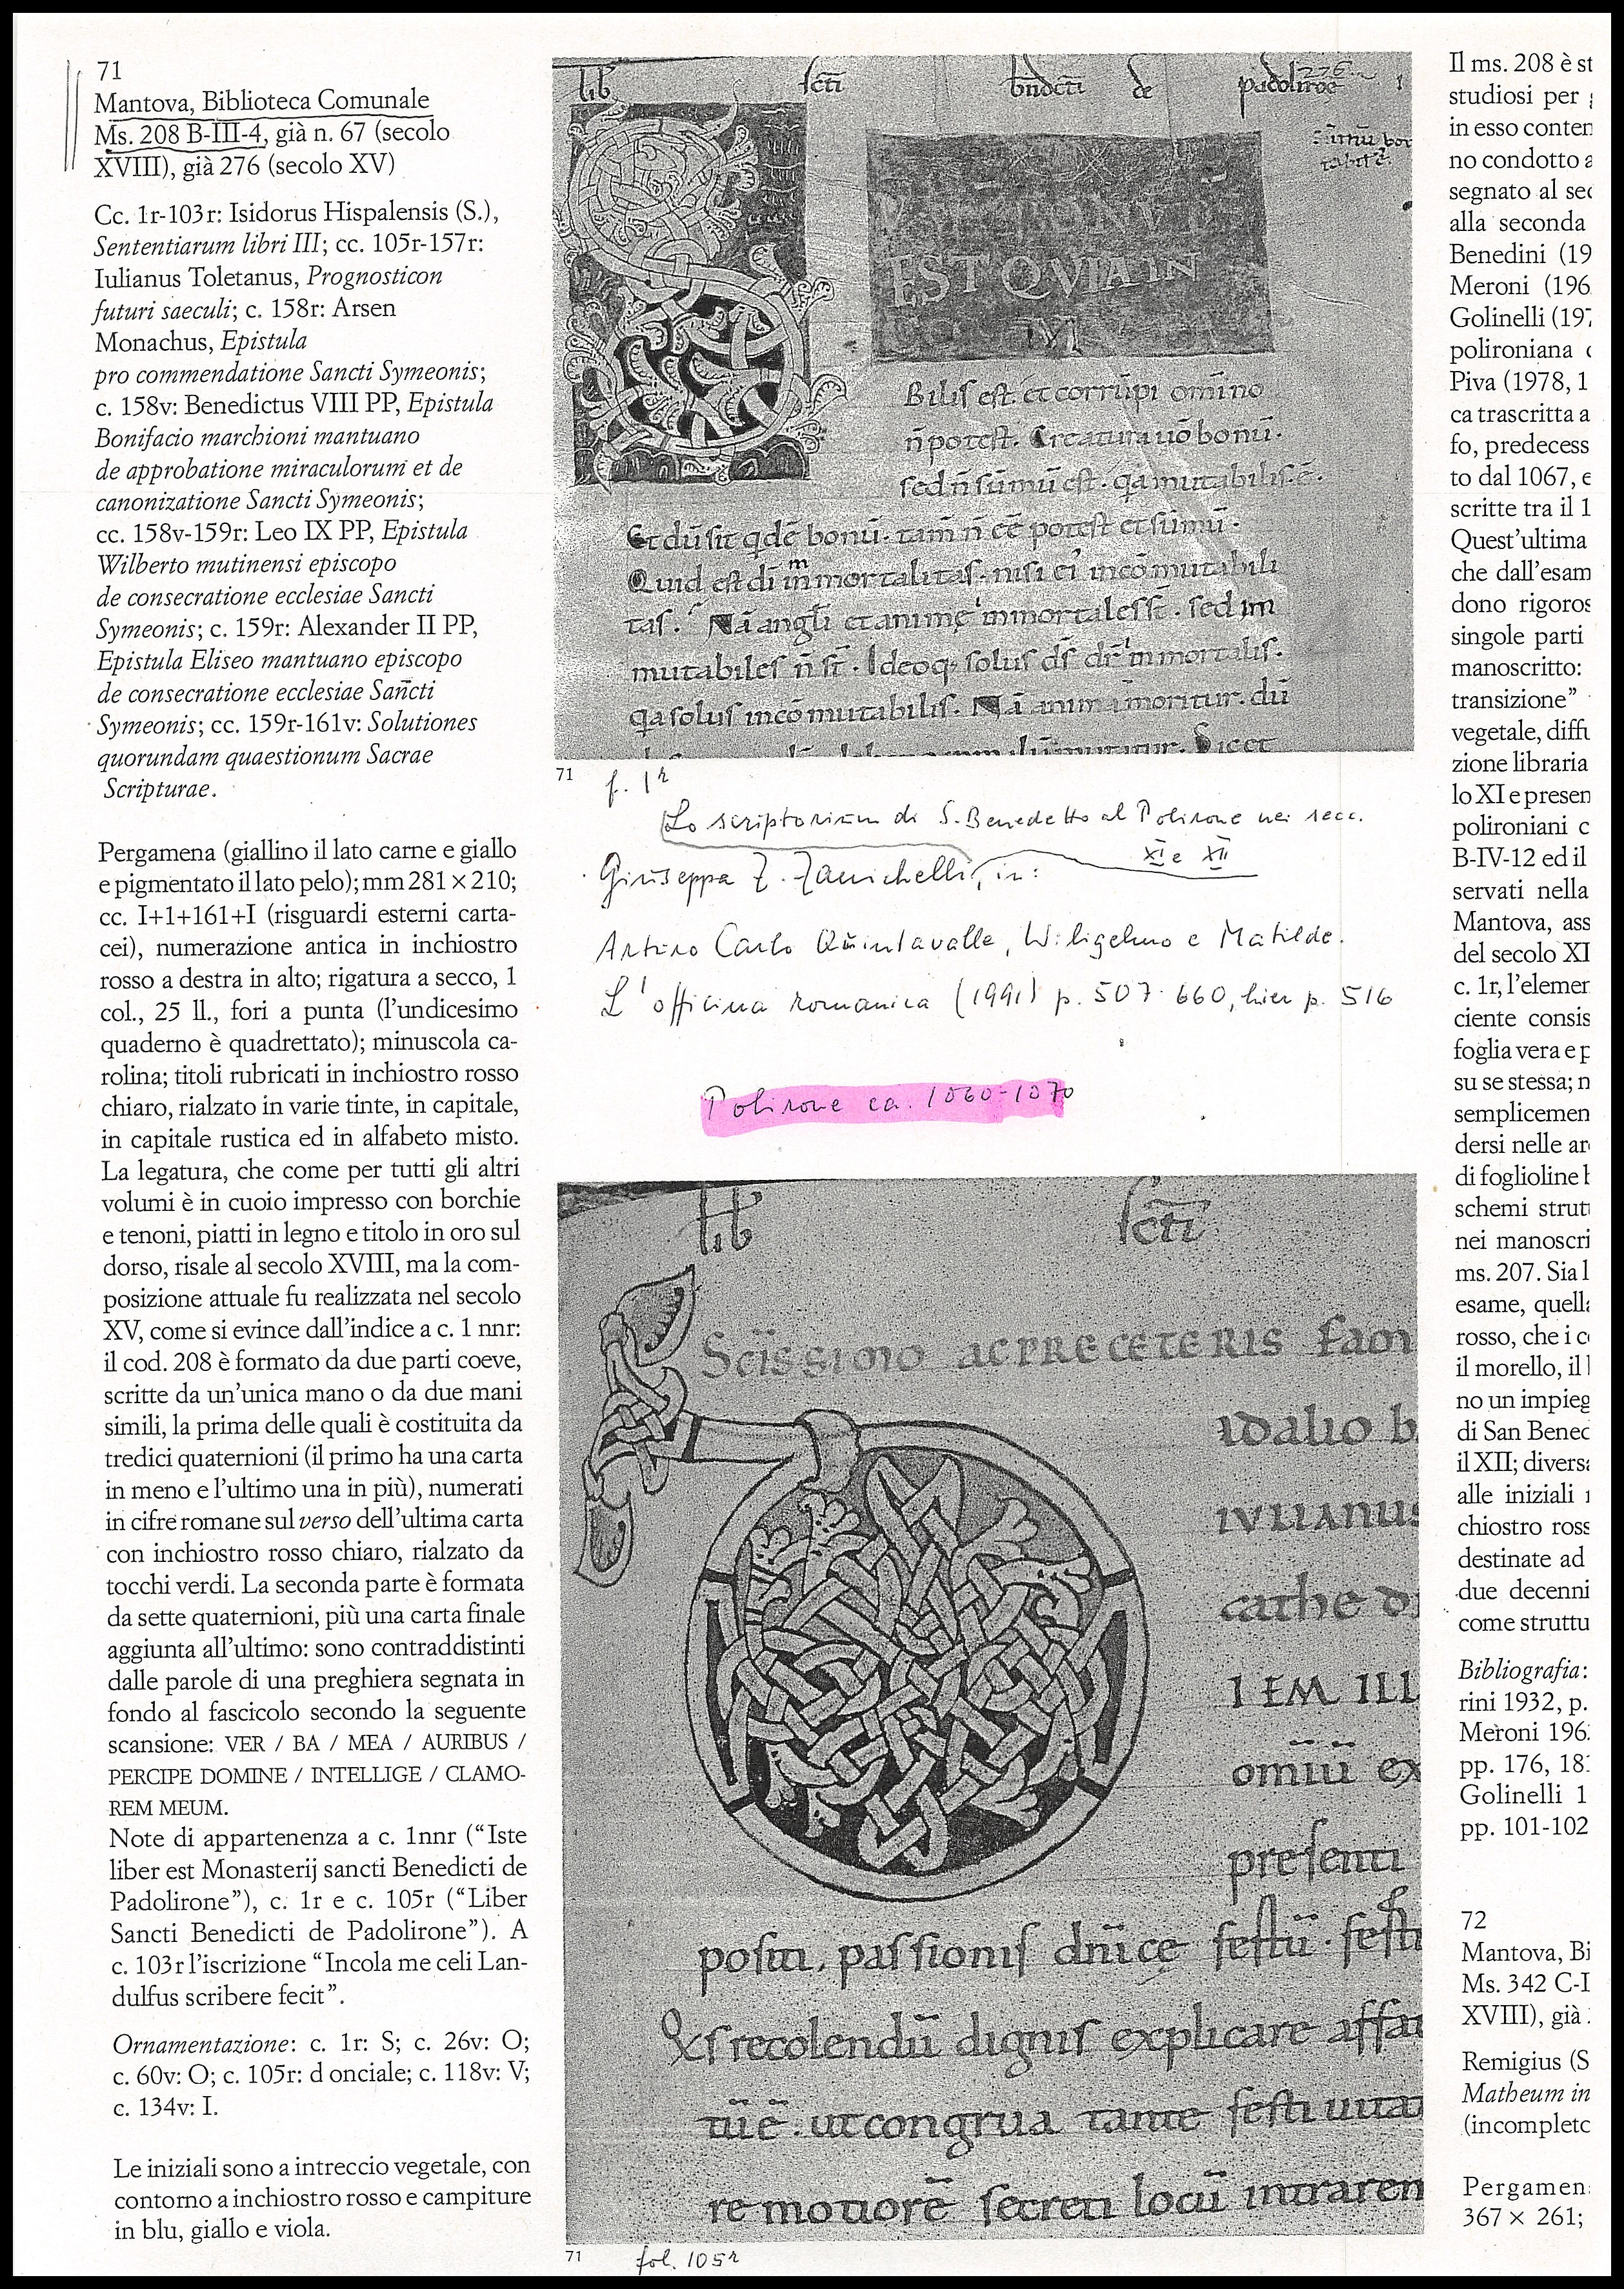 71
Mantova, Biblioteca Comunale
Ms. 208 B-III-4, già n. 67 (secolo
XVIII), già 276 (secolo XV)
Cc. 1r-103r: Isidorus Hispalensis (S.),
Sententiarum libri III; cc. 105r-157r:
Iulianus Toletanus, Prognosticon
futuri saeculi; c. 158r: Arsen
Monachus, Epistula
pro commendatione Sancti Symeonis;
c. 158v: Benedictus VIII PP, Epistula
Bonifacio marchioni mantuano
de approbatione miraculorum et de
canonizatione Sancti Symeonis;
cc. 158v-159r: Leo IX PP, Epistula
Wilberto mutinensi episcopo
de consecratione ecclesiae Sancti
Symeonis; c. 159r: Alexander II PP,
Epistula Eliseo mantuano episcopo
de consecratione ecclesiae Sancti
Symeonis; cc. 159r-161v: Solutiones
quorundam quaestionum Sacrae
Scripturae.
Pergamena (giallino il lato carne e giallo
e pigmentato il lato pelo); mm 281 × 210;
cc. I+1+161+I (risguardi esterni carta-
cei), numerazione antica in inchiostro
rosso a destra in alto; rigatura a secco, 1
col., 25 ll., fori a punta (l'undicesimo
quaderno è quadrettato); minuscola ca-
rolina; titoli rubricati in inchiostro rosso
chiaro, rialzato in varie tinte, in capitale,
in capitale rustica ed in alfabeto misto.
La legatura, che come per tutti gli altri
volumi è in cuoio impresso con borchie
e tenoni, piatti in legno e titolo in oro sul
dorso, risale al secolo XVIII, ma la com-
posizione attuale fu realizzata nel secolo
XV, come si evince dall'indice a c. 1 nnr:
il cod. 208 è formato da due parti coeve,
scritte da un'unica mano o da due mani
simili, la prima delle quali è costituita da
tredici quaternioni (il primo ha una carta
in meno e l'ultimo una in più), numerati
in cifre romane sul verso dell'ultima carta
con inchiostro rosso chiaro, rialzato da
tocchi verdi. La seconda parte è formata
da sette quaternioni, più una carta finale
aggiunta all'ultimo: sono contraddistinti
dalle parole di una preghiera segnata in
fondo al fascicolo secondo la seguente
scansione: VER / BA / MEA / AURIBUS /
PERCIPE DOMINE / INTELLIGE / CLAMO-
REM MEUM.
Note di appartenenza a c. 1nnr (“Iste
liber est Monasterij sancti Benedicti de
Padolirone”), c. 1r e c. 105r (“Liber
Sancti Benedicti de Padolirone”). A
c. 103r l'iscrizione “Incola me celi Lan-
dulfus scribere fecit”.
Ornamentazione: c. 1r: S; c. 26v: O;
c. 60v: O; c. 105r: d onciale; c. 118v: V;
c. 134v: I.
Le iniziali sono a intreccio vegetale, con
contorno a inchiostro rosso e campiture
in blu, giallo e viola.
lib scti bndcti de padolirõe
276
EST QVIA IN
Bilis est. et corrūpi omīno
n̄ potest. Creatura uō bonū.
sed n̄ sūmū est. qa mutabilis.ē.
Et dū sit qdē bonū. tam̄ n̄ ēē potest et sūmū.
Quid est dī īmmortalitas. nisi ei' incōmutabili
tas. Nā angli et animę immortales st̄. sed im
mutabiles n̄ st̄. Ideoq; solus ds̄ dr̄ immortalis.
qa solus incōmutabilis. Nā anima moritur. dū
71
f. 1r
Lo scriptorium di S. Benedetto al Polirone nei secc.
XI e XII
Giuseppa Z. Zanichelli, in:
Arturo Carlo Quintavalle, Wiligelmo e Matilde.
L'officina romanica (1991) p. 507-660, hier p. 516
Polirone ca. 1060-1070
lib scti
Scīssimo ac PRE CETERIS fam
idalio b
iulianus
cathe d
IEM ILL
omīū ex
presenti
positi, passionis dnīcę festū. festi
Exs recolendū dignis explicare affa
tūē. ut congrua tante festiuita
re motiorē secreti locū intraren
71
fol. 105r
Il ms. 208 è st
studiosi per
in esso conten
no condotto a
segnato al sec
alla seconda
Benedini (19
Meroni (196
Golinelli (197
polironiana
Piva (1978, 1
ca trascritta a
fo, predecess
to dal 1067, e
scritte tra il 1
Quest'ultima
che dall'esam
dono rigoros
singole parti
manoscritto:
transizione”
vegetale, diffu
zione libraria
lo XI e presen
polironiani c
B-IV-12 ed il
servati nella
Mantova, ass
del secolo XI
c. 1r, l'elemen
ciente consis
foglia vera e p
su se stessa; n
semplicemen
dersi nelle ar
di foglioline b
schemi strut
nei manoscri
ms. 207. Sia l
esame, quella
rosso, che i c
il morello, il l
no un impieg
di San Bened
il XII; diversa
alle iniziali
chiostro ross
destinate ad
due decenni
come struttu
Bibliografia:
rini 1932, p.
Meroni 196
pp. 176, 18
Golinelli 1
pp. 101-102
72
Mantova, Bi
Ms. 342 C-I
XVIII), già
Remigius (S
Matheum in
(incompleto
Pergamen
367 × 261;